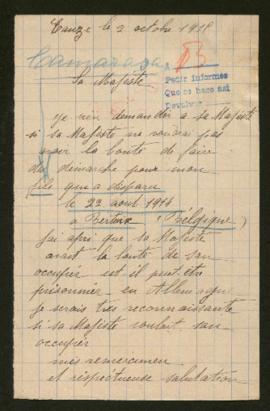 Cauze le 2 octobre
Sa Majesté
Pedir informes
Que se hace así
Devolver
Je vien demander a Sa Majesté
si Sa Majesté ne
avoir la bonté de faire
des démarche pour mon
fils qui a disparu
le 22 aout 1914
a Bertrix (Belgique)
J'ai apri que Sa Majesté
avait la bonté de san
occupier est il peut être
prisonnier en Allemagne
je serais très reconnaissante
si Sa Majesté voulait san
occupier
mes remerciemen
et respectueuse salutation